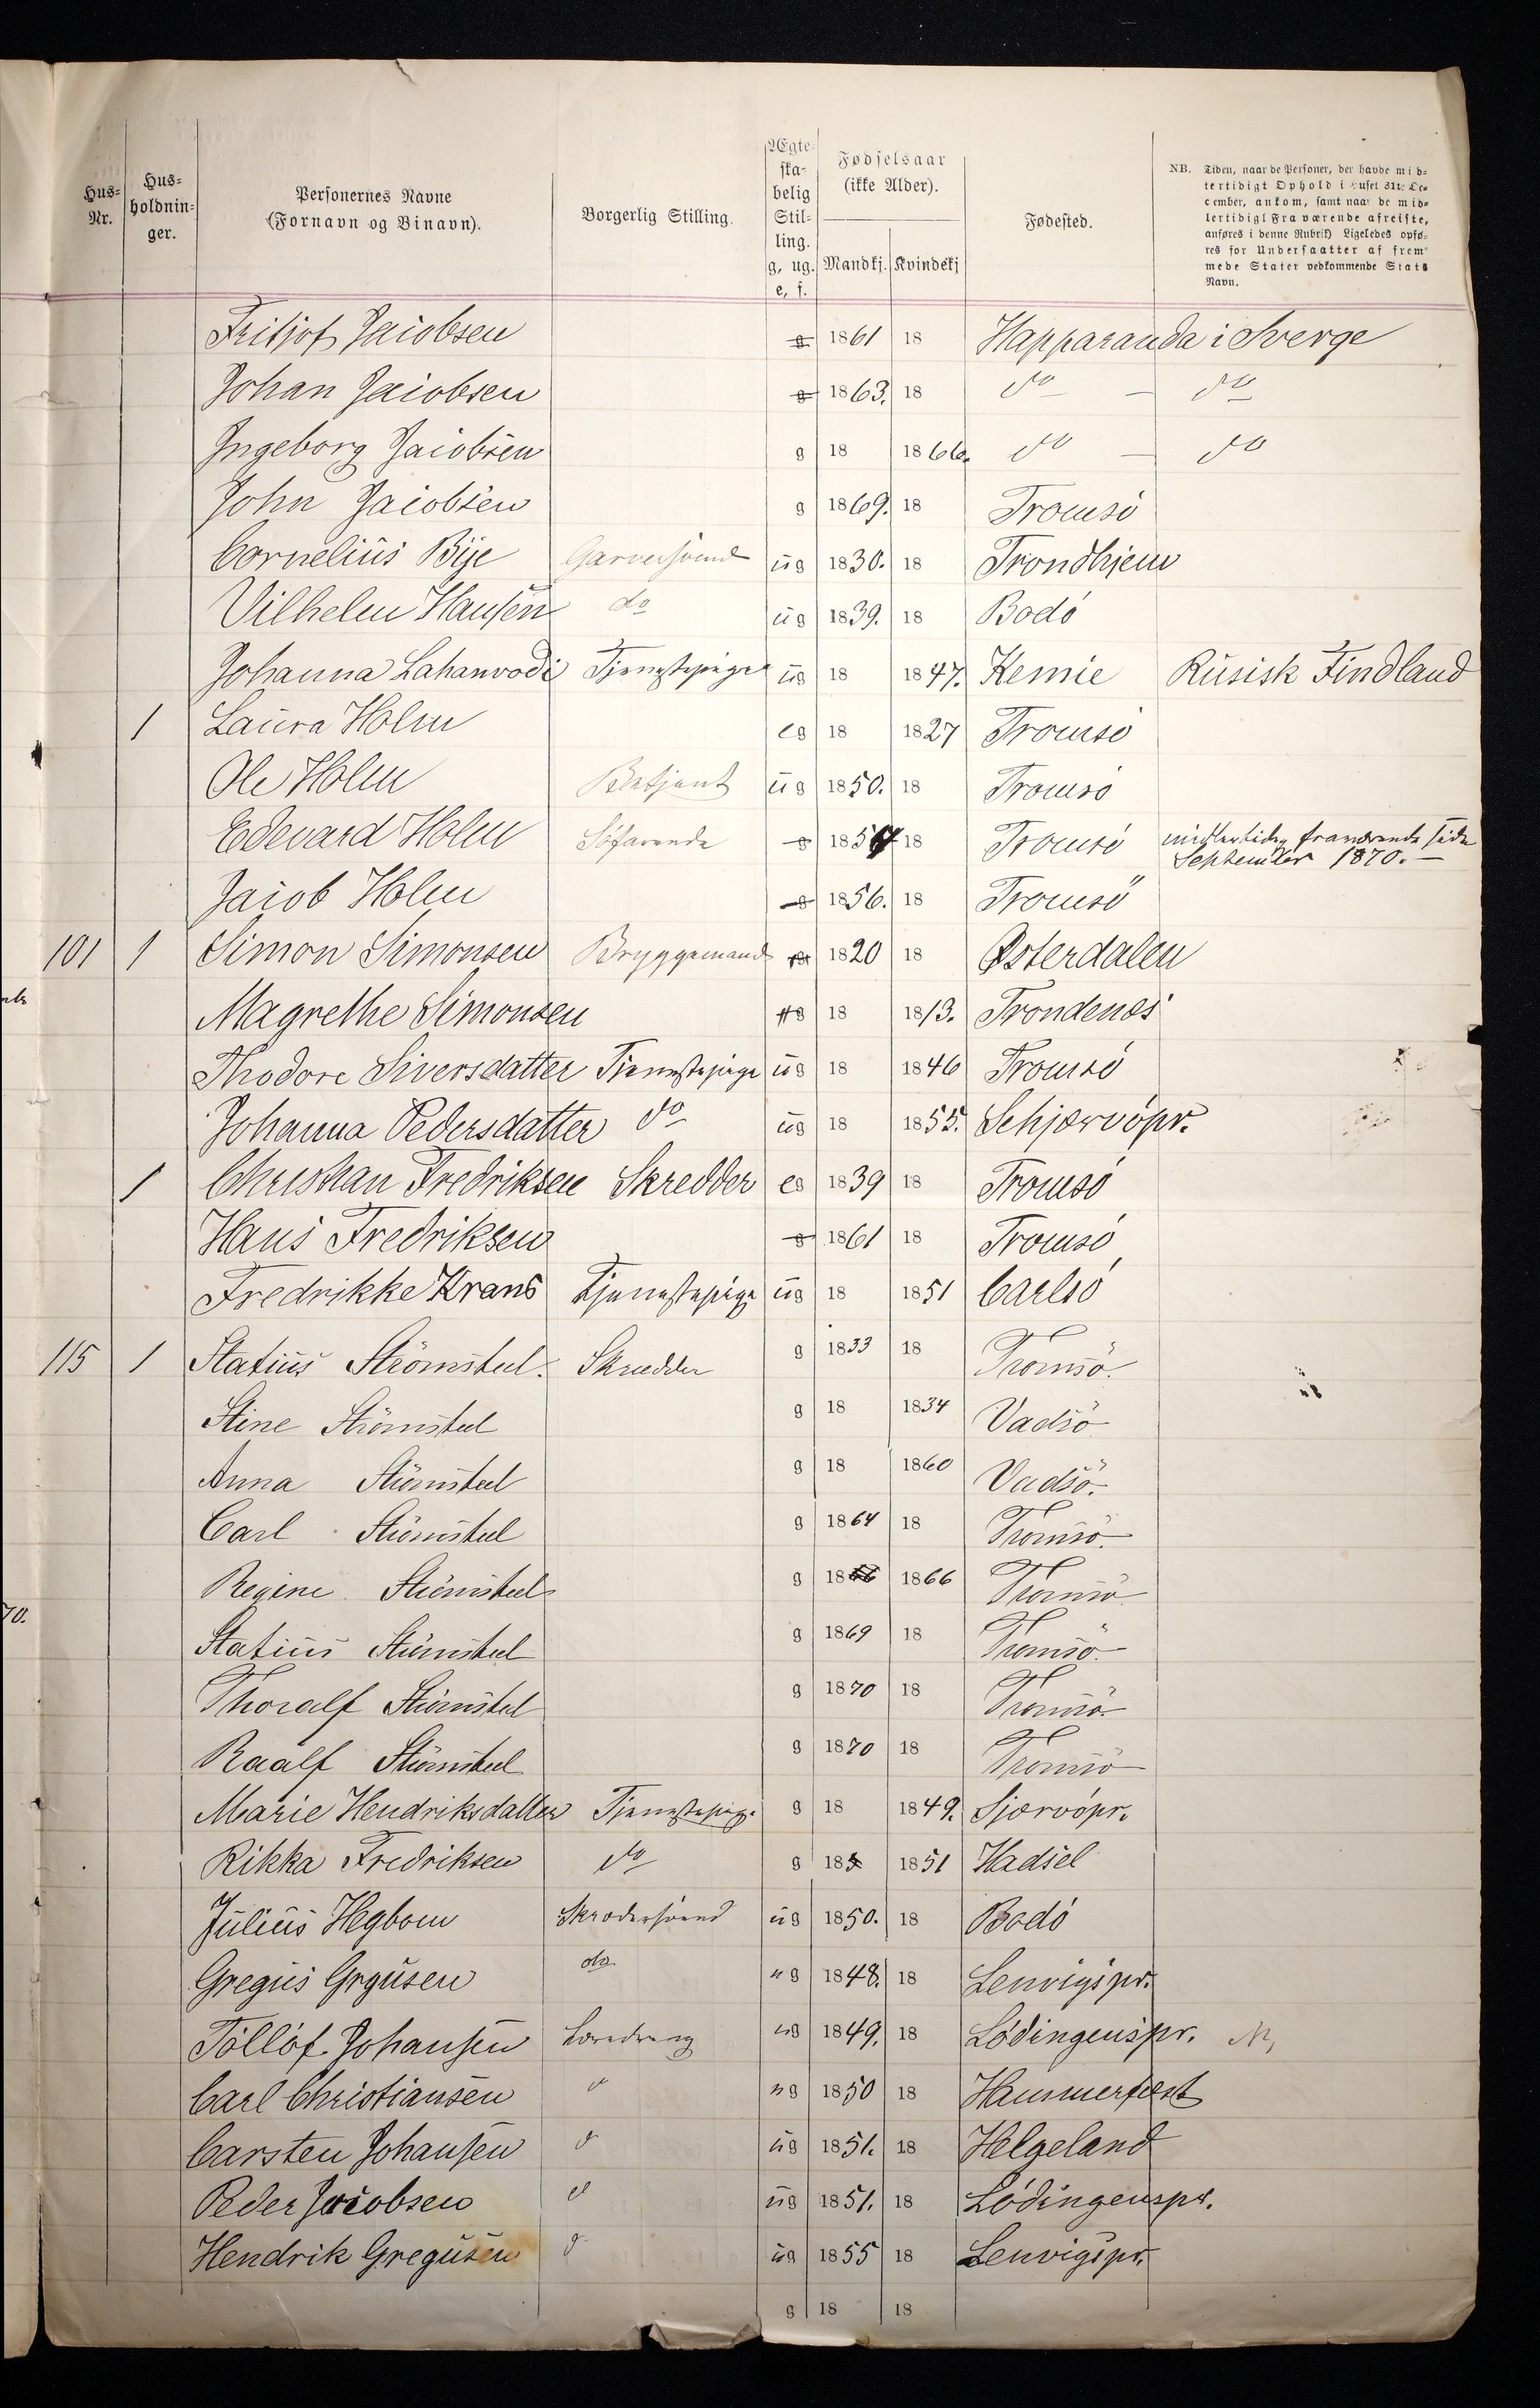 Hus-Nr. Hus-holdnin-ger. Personernes Navne (Fornavn og Binavn). Borgerlig Stilling. Ægte-ska-belig Stil-ling. g, ug. e, f. Fødselsaar (ikke Alder). Mandkj. Kvindekj Fødested. NB. Tiden, naar de Personer, der havde mid-
lertidigt Ophold i Huset 31te De-
cember, ankom, samt naar de mid-
lertidigt Fraværende afreiste,
anføres i denne Rubrik) Ligeledes opfø-
res for Undersaatter af frem-
mede Stater vedkommende Stats
Navn.
Fritjof Jacobsen g 1861 18 Happaranda i Sverge
Johan Jacobsen g 1863. 18 do — do
Ingeborg Jacobsen g 18 1866. do — do
John Jacobsen g 1869. 18 Tromsö
Cornelius Bye Garversvend ug 1830. 18 Trondhjem
Vilhelm Hansen do ug 1839. 18 Bodö
Johanna Lahanvodi Tjenestepige ug 18 1847. Kemie Rusisk Findland
1 Laura Holm eg 18 1827 Tromsö
Ole Holm Betjent ug 1850. 18 Tromsö
Edevard Holm Söfarende g 1854 18 Tromsö midlertidig fraværende siden
September 1870. —
Jacob Holm g 1856. 18 Tromsö
101 1 Simon Simonsen Bryggemand g 1820 18 Østerdalen
Magrethe Simonsen g 18 1813. Trondenes
Thodore Siversdatter Tjenestepige ug 18 1846 Tromsö
Johanna Pedersdatter do ug 18 1855. Schjærvöpr.
1 Christian Fredriksen Skredder eg 1839 18 Tromsö
Hans Fredriksen g 1861 18 Tromsö
Fredrikke Krans Tjenestepige ug 18 1851 Carlsö
115 1 Statius Strömsted. Skredder g 1833 18 Tromsö.
Stine Strömsted g 18 1834 Vadsö
Anna Strömsted g 18 1860 Vadsö.
Carl Strömsted g 1864 18 Tromsö.
Regine Strömsted g 18 1866 Tromsö
Statius Strömsted g 1869 18 Tromsö.
Thoralf Strömsted g 1870 18 Tromsö
Raalf Strömsted g 1870 18 Tromsö
Marie Hendriksdatter Tjenestepige g 18 1849. Sjærvöpr.
70.
Rikka Fredriksen do g 18 1851 Hadsel
Julius Hegbom Skrædersvend ug 1850. 18 Bodö
Gregus Grgusen do ug 1848. 18 Lenvigspr.
Tollof Johansen Læredreng ug 1849. 18 Lödingenspr.
Carl Christiansen ug 1850 18 Hammerfest
Carsten Johansen ug 1851. 18 Helgeland
Peder Jacobsen ug 1851. 18 Lödingenspr.
Hendrik Gregusen ug 1855 18 Lenvigspr.
g 18 18